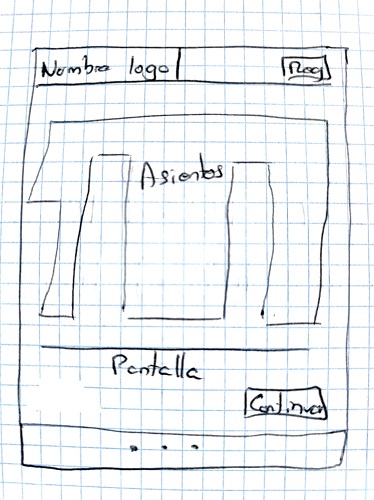 Nombre logo
Reg
Asientos
Pantalla
Continuar